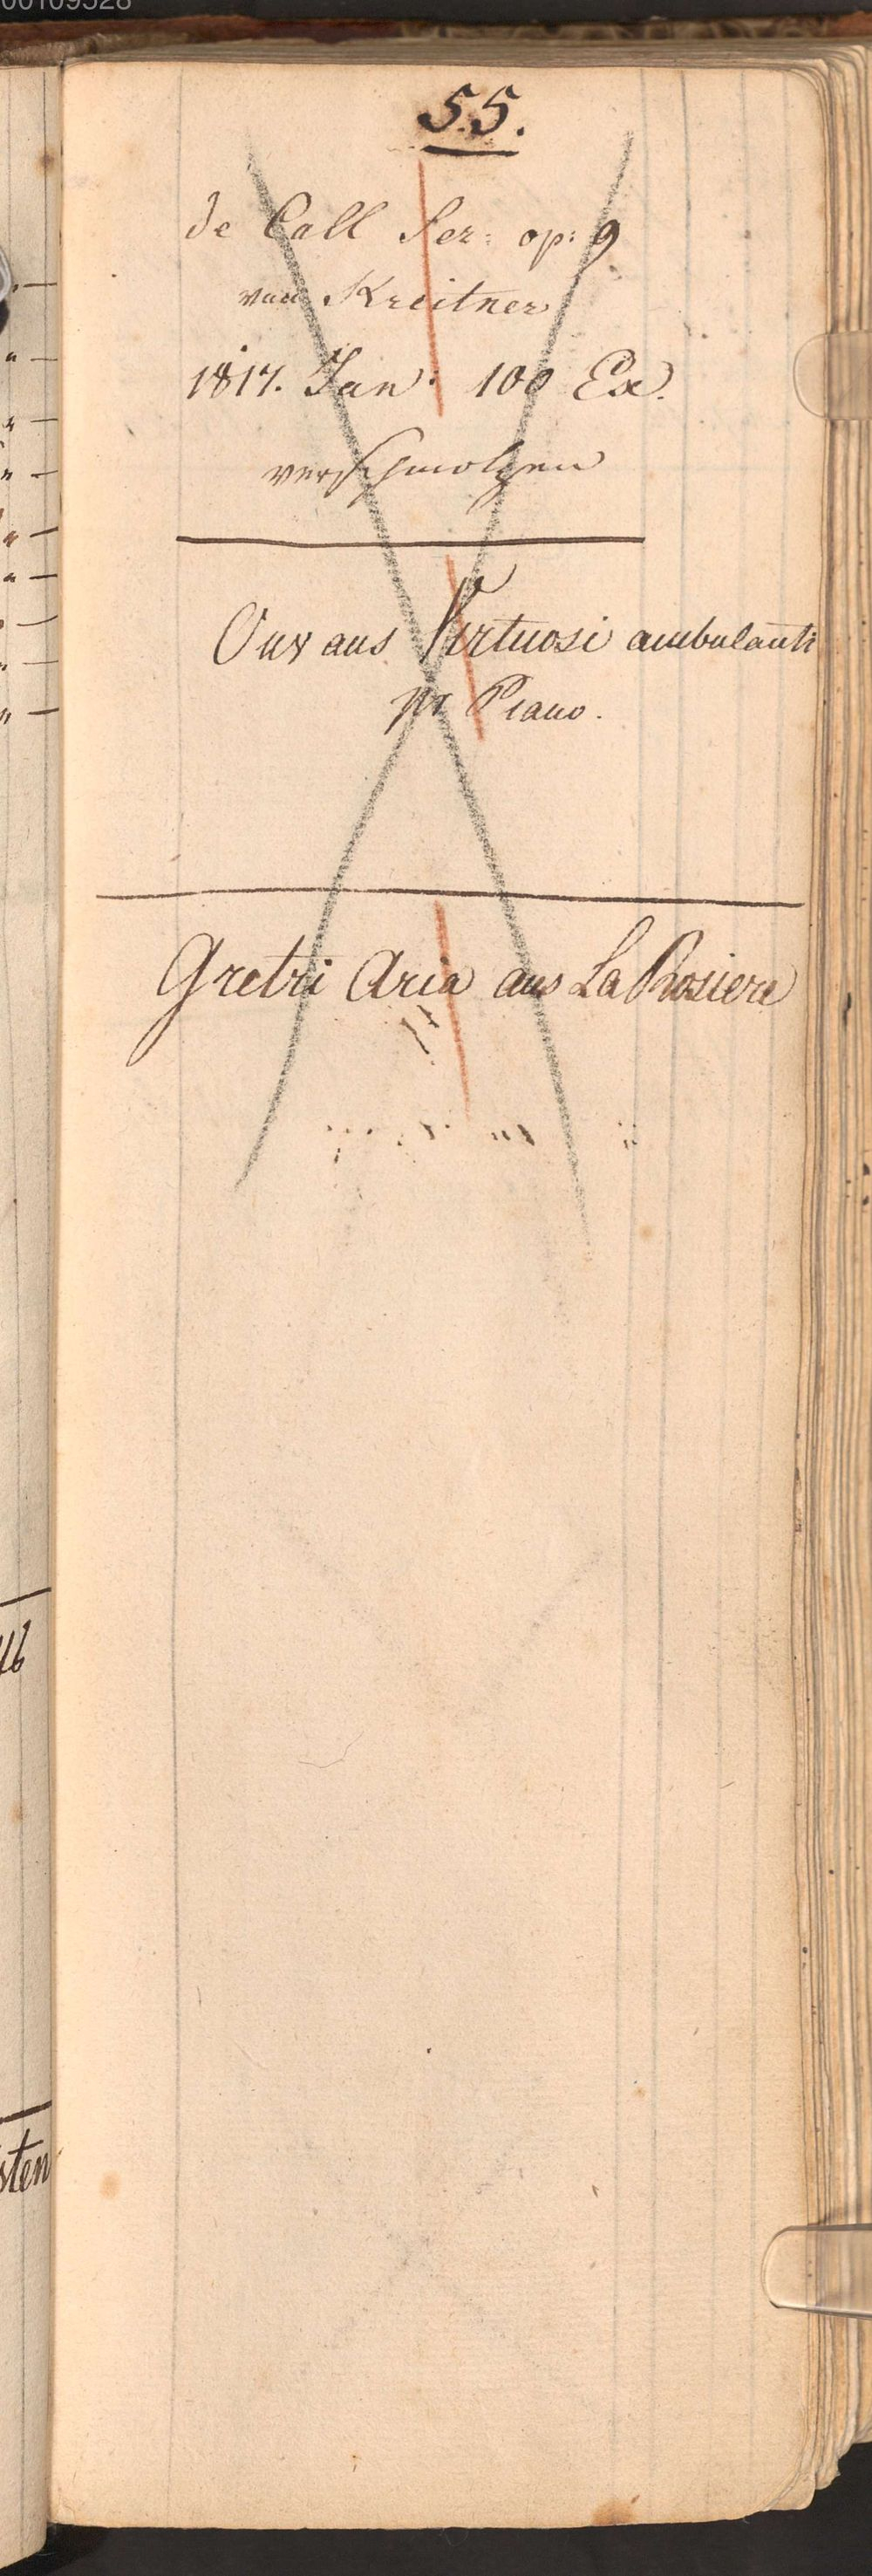 00109528
55.
de Call Ser: op: 9
von Kreitner
1817. Jan: 100 Ex.
verschmolzen
Ouv aus Virtuosi ambulanti
pr Piano.
Gretri Aria aus La Rosiere
46
sten